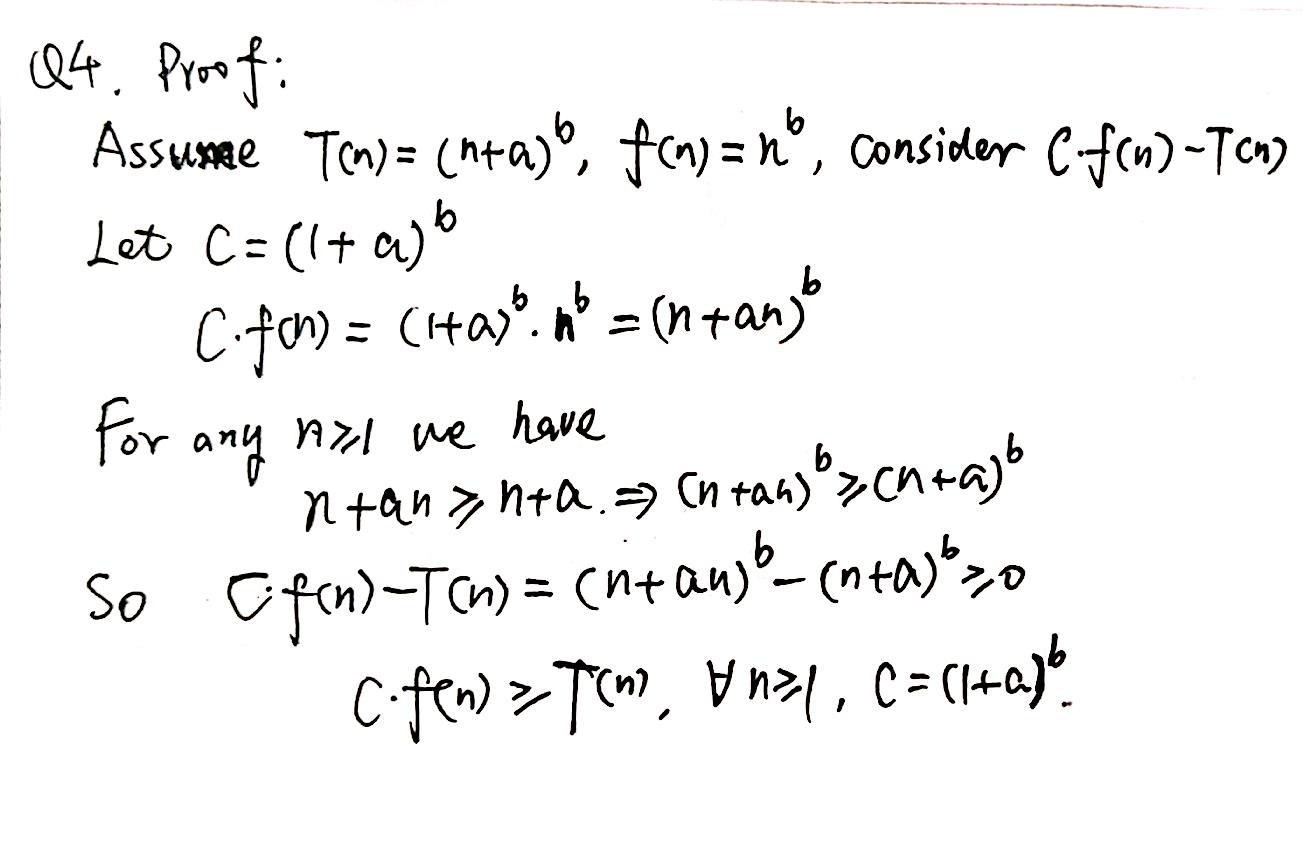 Q4. Proof:
Assume T(n) = (n+a)^b, f(n) = n^b, consider C·f(n) - T(n)
Let C = (1+a)^b
C·f(n) = (1+a)^b · n^b = (n+an)^b
For any n⩾1 we have
n+an ⩾ n+a. ⇒ (n+an)^b ⩾ (n+a)^b
So C·f(n) - T(n) = (n+an)^b - (n+a)^b ⩾ 0
C·f(n) ⩾ T(n), ∀ n⩾1, C = (1+a)^b.